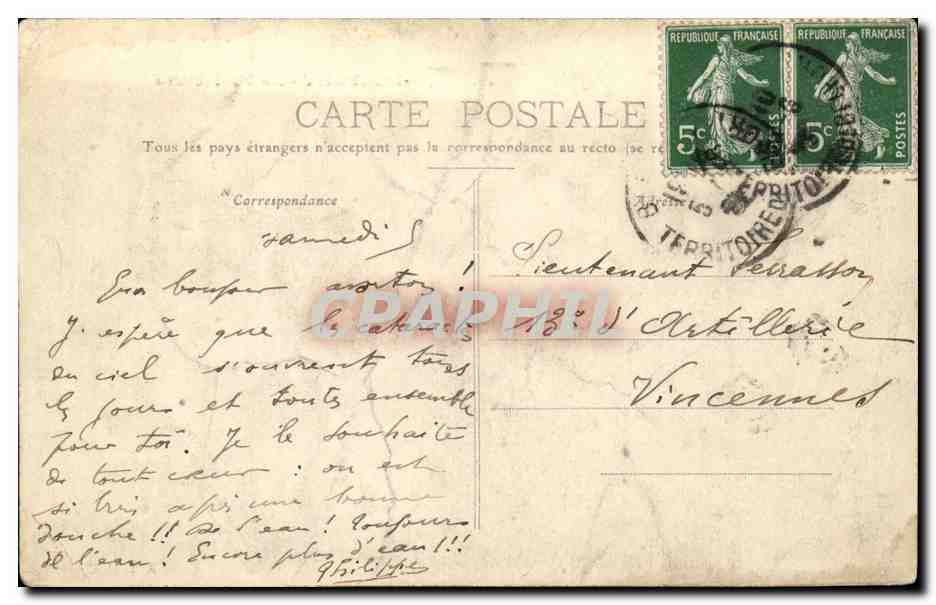 RÉPUBLIQUE FRANÇAISE
RÉPUBLIQUE FRANÇAISE
5c POSTES
5c POSTES
CARTE POSTALE
Tous les pays étrangers n'acceptent pas la correspondance au recto (se
Correspondance
Adresse
TERRITOIRE DE
TERRITOIRE
samedi
bonjour !
J'espère que les cataractes
du ciel s'ouvrent tous
les jours et toutes ensemble
pour toi. Je le souhaite
de tout cœur : on est
si bien après une bonne
douche !! de l'eau ! toujours
de l'eau ! Encore plus d'eau !!!
Philippe
Lieutenant
13e d'Artillerie
Vincennes
CPAPHIL